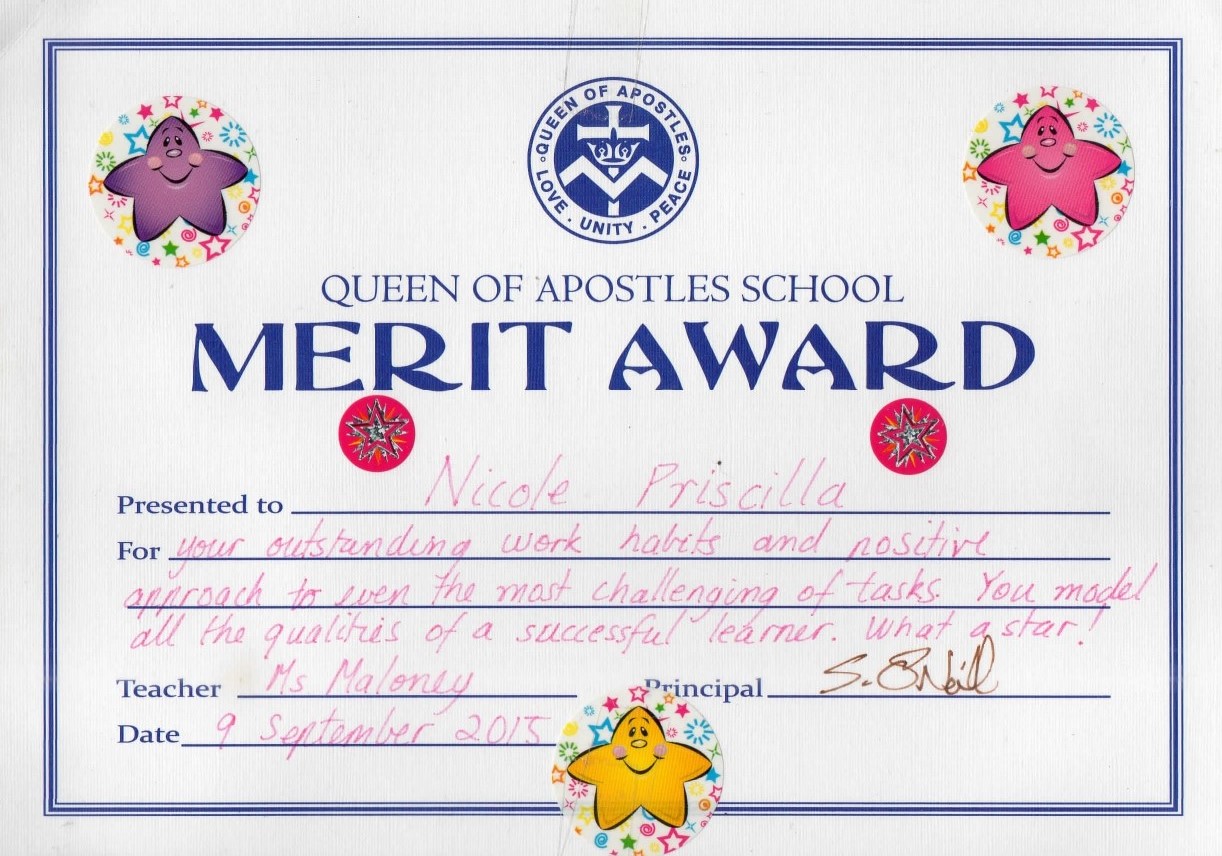 QUEEN OF APOSTLES
LOVE . UNITY . PEACE
QUEEN OF APOSTLES SCHOOL
MERIT AWARD
Presented to Nicole Priscilla
For your outstanding work habits and positive
approach to even the most challenging of tasks. You model
all the qualities of a successful learner. What a star!
Teacher Ms Maloney Principal S. O'Neill
Date 9 September 2015